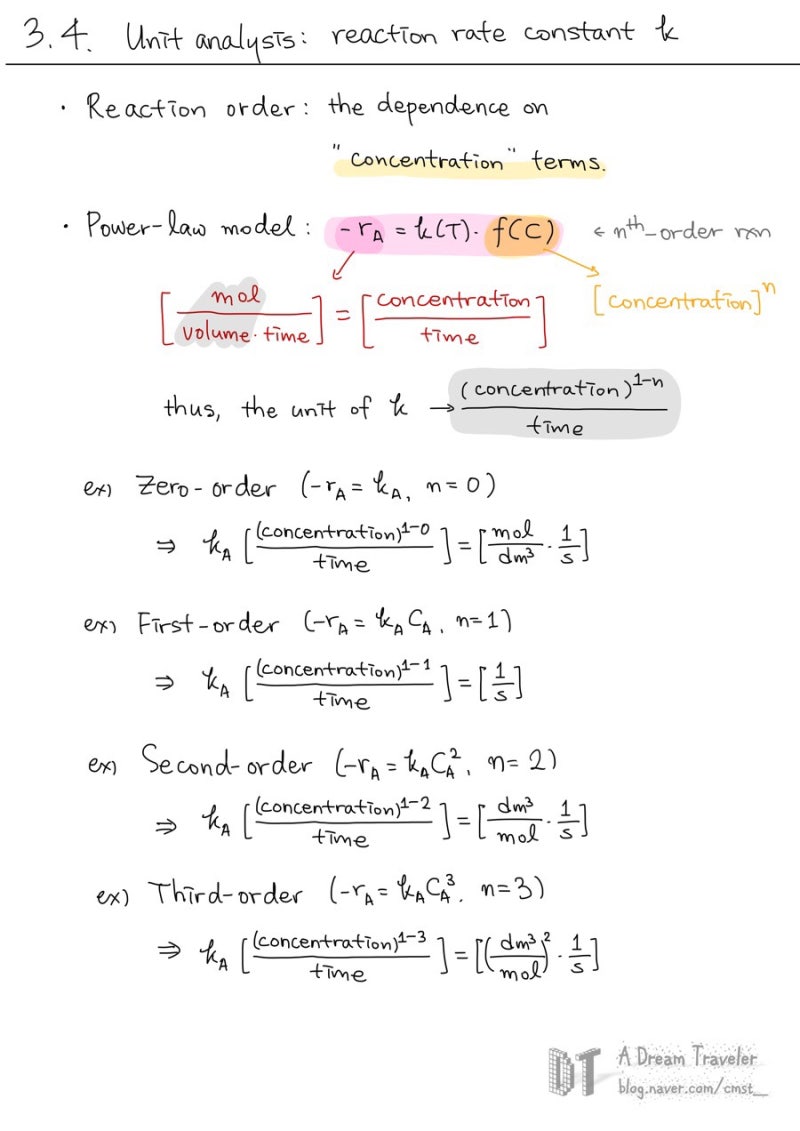 3.4. Unit analysis: reaction rate constant k
· Reaction order: the dependence on
"concentration" terms.
· Power-law model: -rA = k(T)· f(C) ← nth-order rxn
[mol / volume·time] = [concentration / time] [concentration]^n
thus, the unit of k → (concentration)^1-n / time
ex) Zero-order (-rA = kA, n=0)
⇒ kA [(concentration)^1-0 / time] = [mol/dm³ · 1/s]
ex) First-order (-rA = kACA, n=1)
⇒ kA [(concentration)^1-1 / time] = [1/s]
ex) Second-order (-rA = kACA², n=2)
⇒ kA [(concentration)^1-2 / time] = [dm³/mol · 1/s]
ex) Third-order (-rA = kACA³, n=3)
⇒ kA [(concentration)^1-3 / time] = [(dm³/mol)² · 1/s]
DT A Dream Traveler
blog.naver.com/cmst_